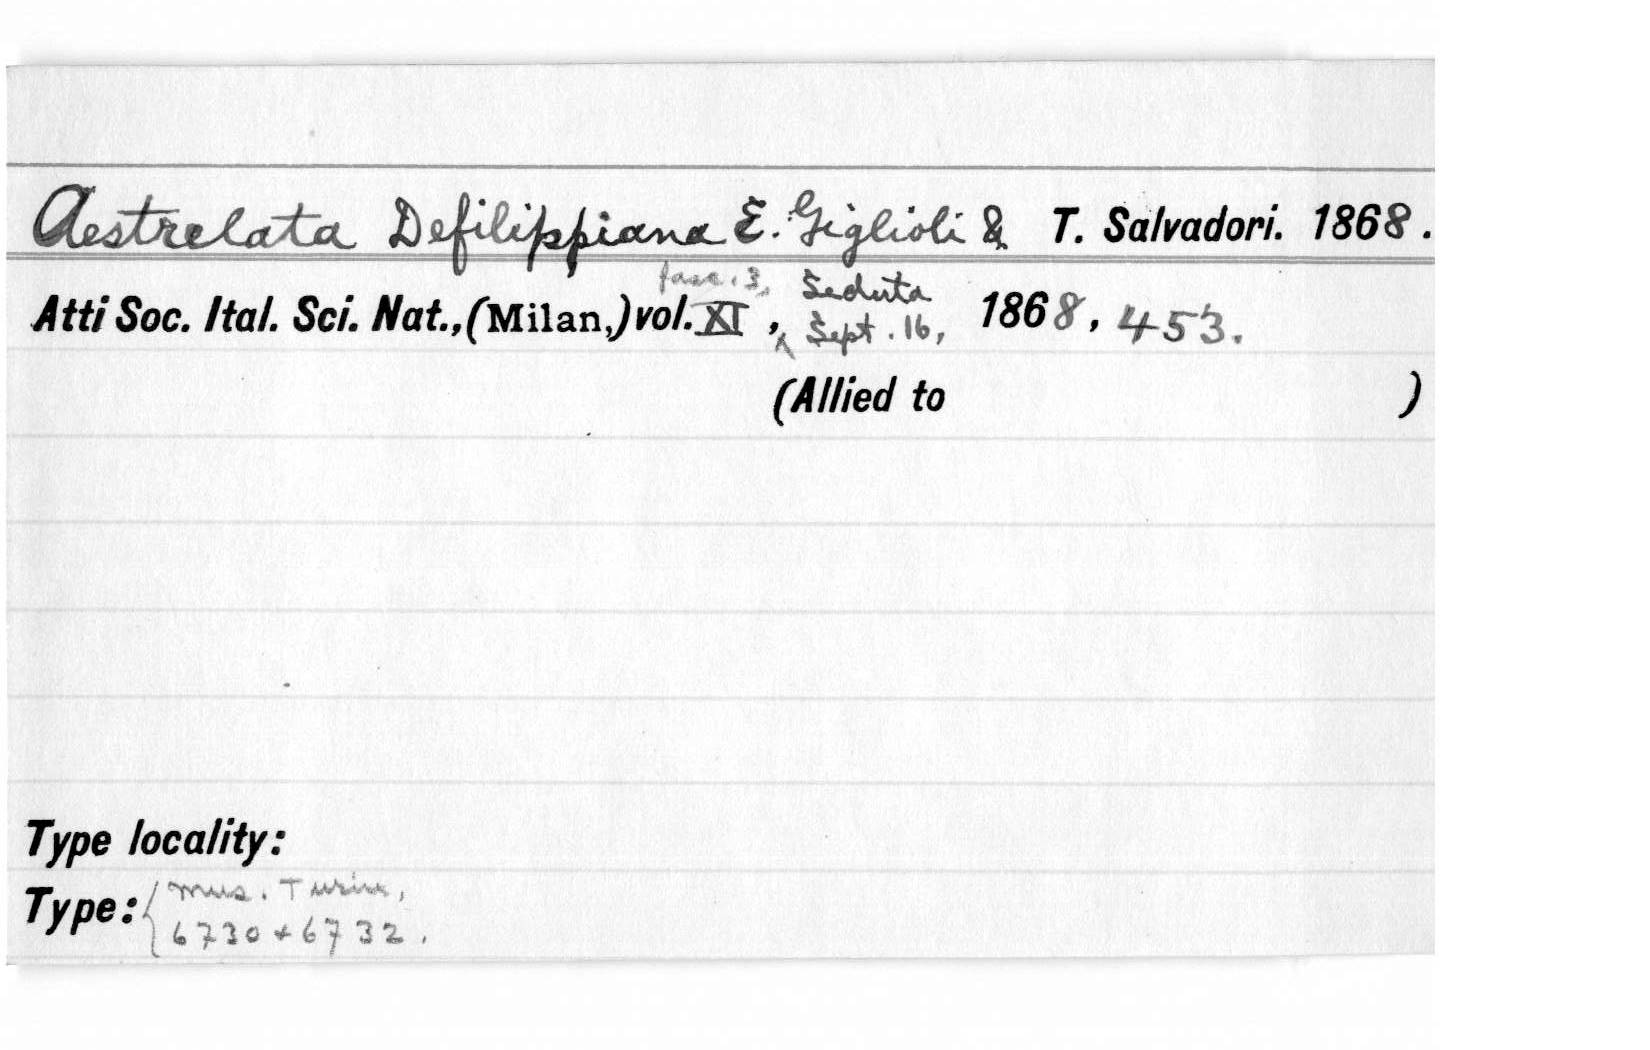 Aestrelata Defilippiana E. Giglioli & T. Salvadori. 1868.
fasc. 3, Seduta
Atti Soc. Ital. Sci. Nat., (Milan,) vol. XI, Sept. 16, 1868, 453.
(Allied to )
Type locality:
Type: Mus. Turin,
6730 + 6732.